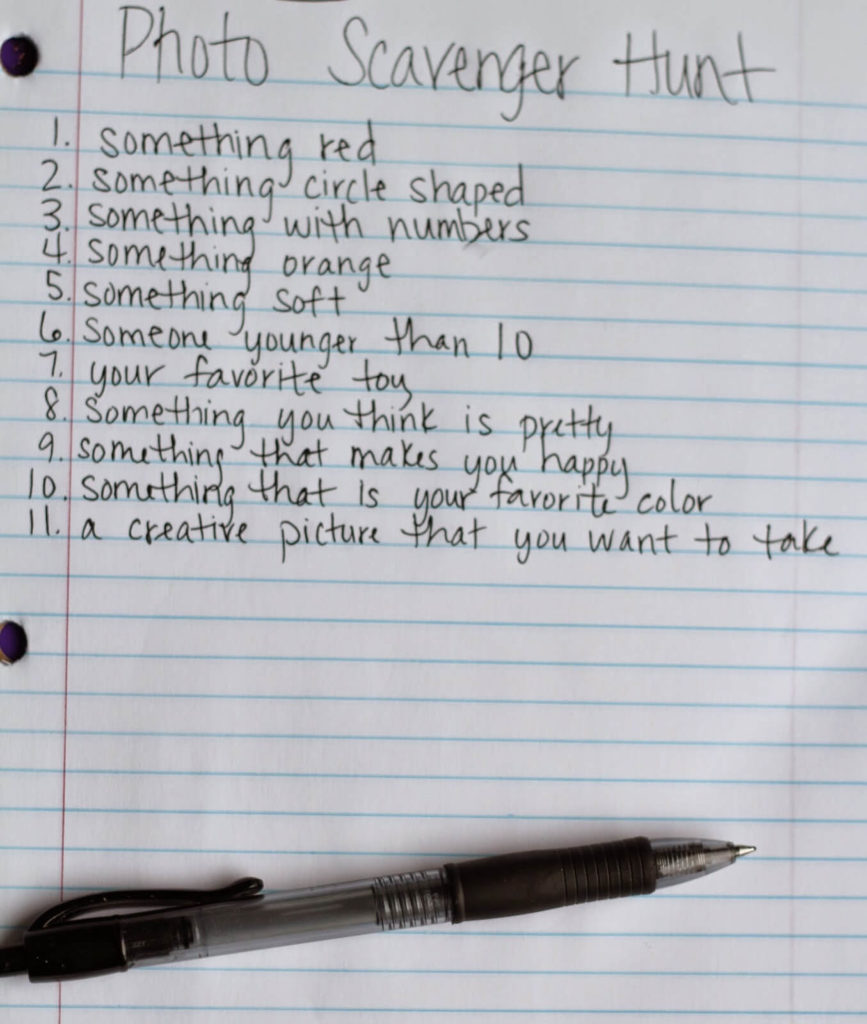 Photo Scavenger Hunt
1. something red
2. something circle shaped
3. something with numbers
4. something orange
5. something soft
6. Someone younger than 10
7. your favorite toy
8. Something you think is pretty
9. something that makes you happy
10. something that is your favorite color
11. a creative picture that you want to take